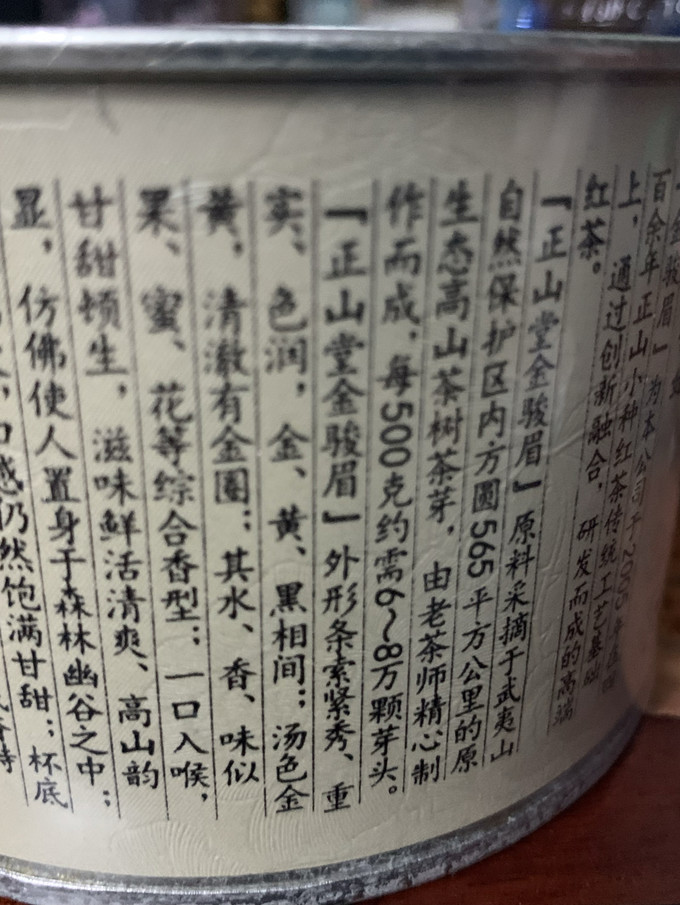 金骏眉
百余年正山小种红茶传统工艺基础
上，通过创新融合，研发而成的高端
红茶。
『正山堂金骏眉』原料采摘于武夷山
自然保护区内方圆565平方公里的原
生态高山茶树茶芽，由老茶师精心制
作而成，每500克约需6～8万颗芽头。
『正山堂金骏眉』外形条索紧秀、重
实、色润，金、黄、黑相间；汤色金
黄，清澈有金圈；其水、香、味似
果、蜜、花等综合香型；一口入喉，
甘甜顿生，滋味鲜活清爽、高山韵
显，仿佛使人置身于森林幽谷之中；
口感仍然饱满甘甜；杯底